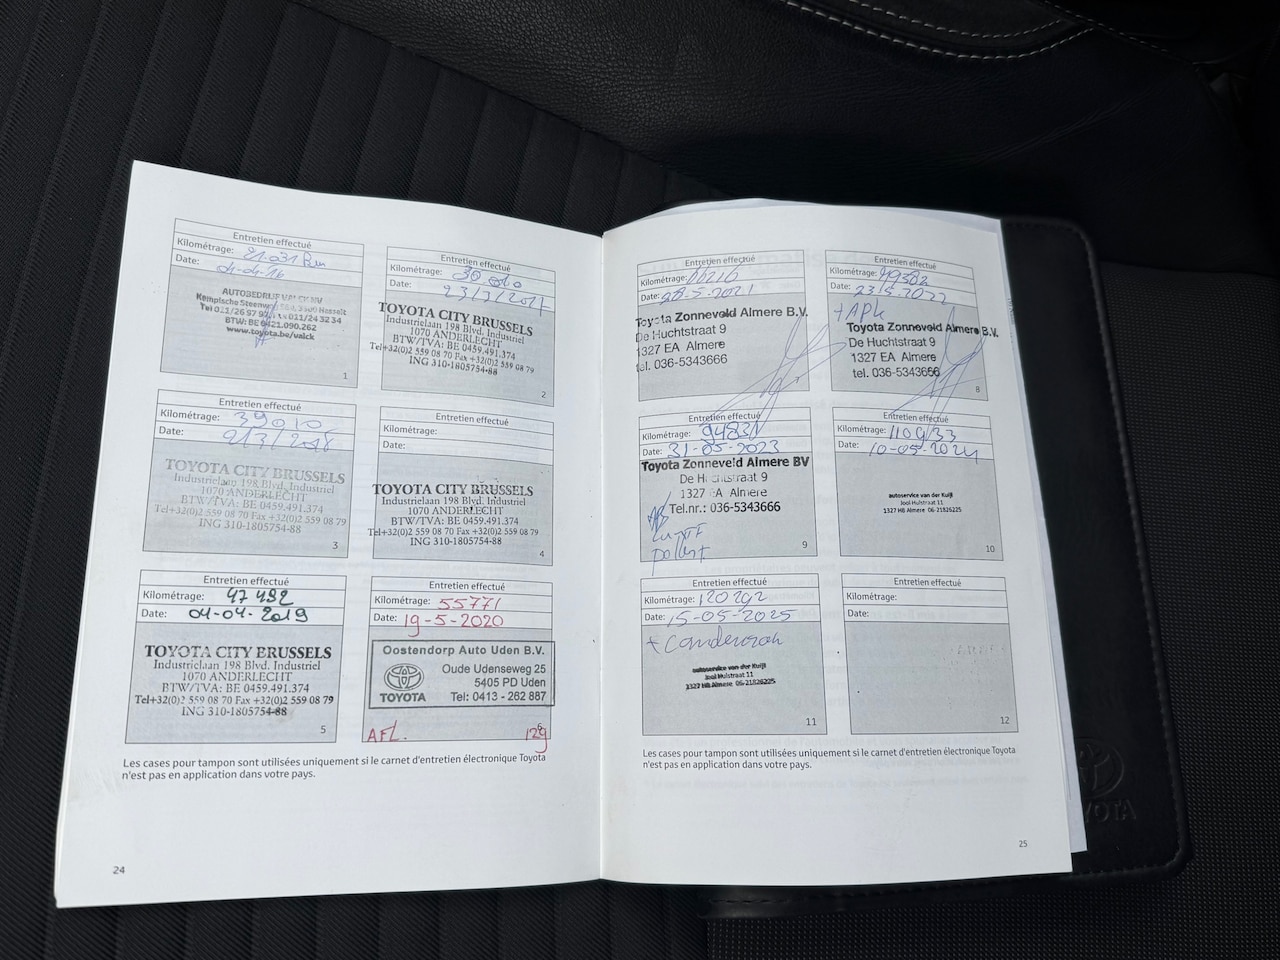 Entretien effectué
Kilométrage: 21.031 km
Date: 04-04-16
AUTOBEDRIJF VALCK NV
Kempische Steenweg Hasselt
Tel 011/26 97 97 011/24 32 34
BTW: BE 0421.090.262
www.toyota.be/valck
1
Entretien effectué
Kilométrage: 30.010
Date: 23/3/2017
TOYOTA CITY BRUSSELS
Industrielaan 198 Blvd. Industriel
1070 ANDERLECHT
BTW/TVA: BE 0459.491.374
Tel+32(0)2 559 08 70 Fax +32(0)2 559 08 79
ING 310-1805754-88
2
Entretien effectué
Kilométrage: 39010
Date: 9/3/2018
TOYOTA CITY BRUSSELS
Industrielaan 198 Blvd. Industriel
1070 ANDERLECHT
BTW/TVA: BE 0459.491.374
Tel+32(0)2 559 08 70 Fax +32(0)2 559 08 79
ING 310-1805754-88
3
Entretien effectué
Kilométrage:
Date:
TOYOTA CITY BRUSSELS
Industrielaan 198 Blvd. Industriel
1070 ANDERLECHT
BTW/TVA: BE 0459.491.374
Tel+32(0)2 559 08 70 Fax +32(0)2 559 08 79
ING 310-1805754-88
4
Entretien effectué
Kilométrage: 47 492
Date: 04-04-2019
TOYOTA CITY BRUSSELS
Industrielaan 198 Blvd. Industriel
1070 ANDERLECHT
BTW/TVA: BE 0459.491.374
Tel+32(0)2 559 08 70 Fax +32(0)2 559 08 79
ING 310-1805754-88
5
Entretien effectué
Kilométrage: 55771
Date: 19-5-2020
Oostendorp Auto Uden B.V.
Oude Udenseweg 25
5405 PD Uden
TOYOTA Tel: 0413 - 262 887
AFL. 129
6
Les cases pour tampon sont utilisées uniquement si le carnet d'entretien électronique Toyota
n'est pas en application dans votre pays.
24
Entretien effectué
Kilométrage:
Date: 28-5-2021
Toyota Zonneveld Almere B.V.
De Huchtstraat 9
1327 EA Almere
tel. 036-5343666
7
Entretien effectué
Kilométrage: 79382
Date: 23-5-2022
+ APK
Toyota Zonneveld Almere B.V.
De Huchtstraat 9
1327 EA Almere
tel. 036-5343666
8
Entretien effectué
Kilométrage: 94831
Date: 31-05-2023
Toyota Zonneveld Almere BV
De Huchtstraat 9
1327 EA Almere
Tel.nr.: 036-5343666
9
Entretien effectué
Kilométrage: 110933
Date: 10-05-2024
autoservice van der Kuijl
Jool Hulstraat 11
1327 HB Almere 06-21826225
10
Entretien effectué
Kilométrage: 120292
Date: 15-05-2025
autoservice van der Kuijl
Jool Hulstraat 11
1327 HB Almere 06-21826225
11
Entretien effectué
Kilométrage:
Date:
12
Les cases pour tampon sont utilisées uniquement si le carnet d'entretien électronique Toyota
n'est pas en application dans votre pays.
25
TOYOTA